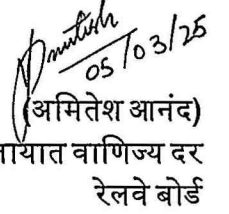 Amitesh
05/03/25
(अमितेश आनंद)
तायात वाणिज्य दर
रेलवे बोर्ड